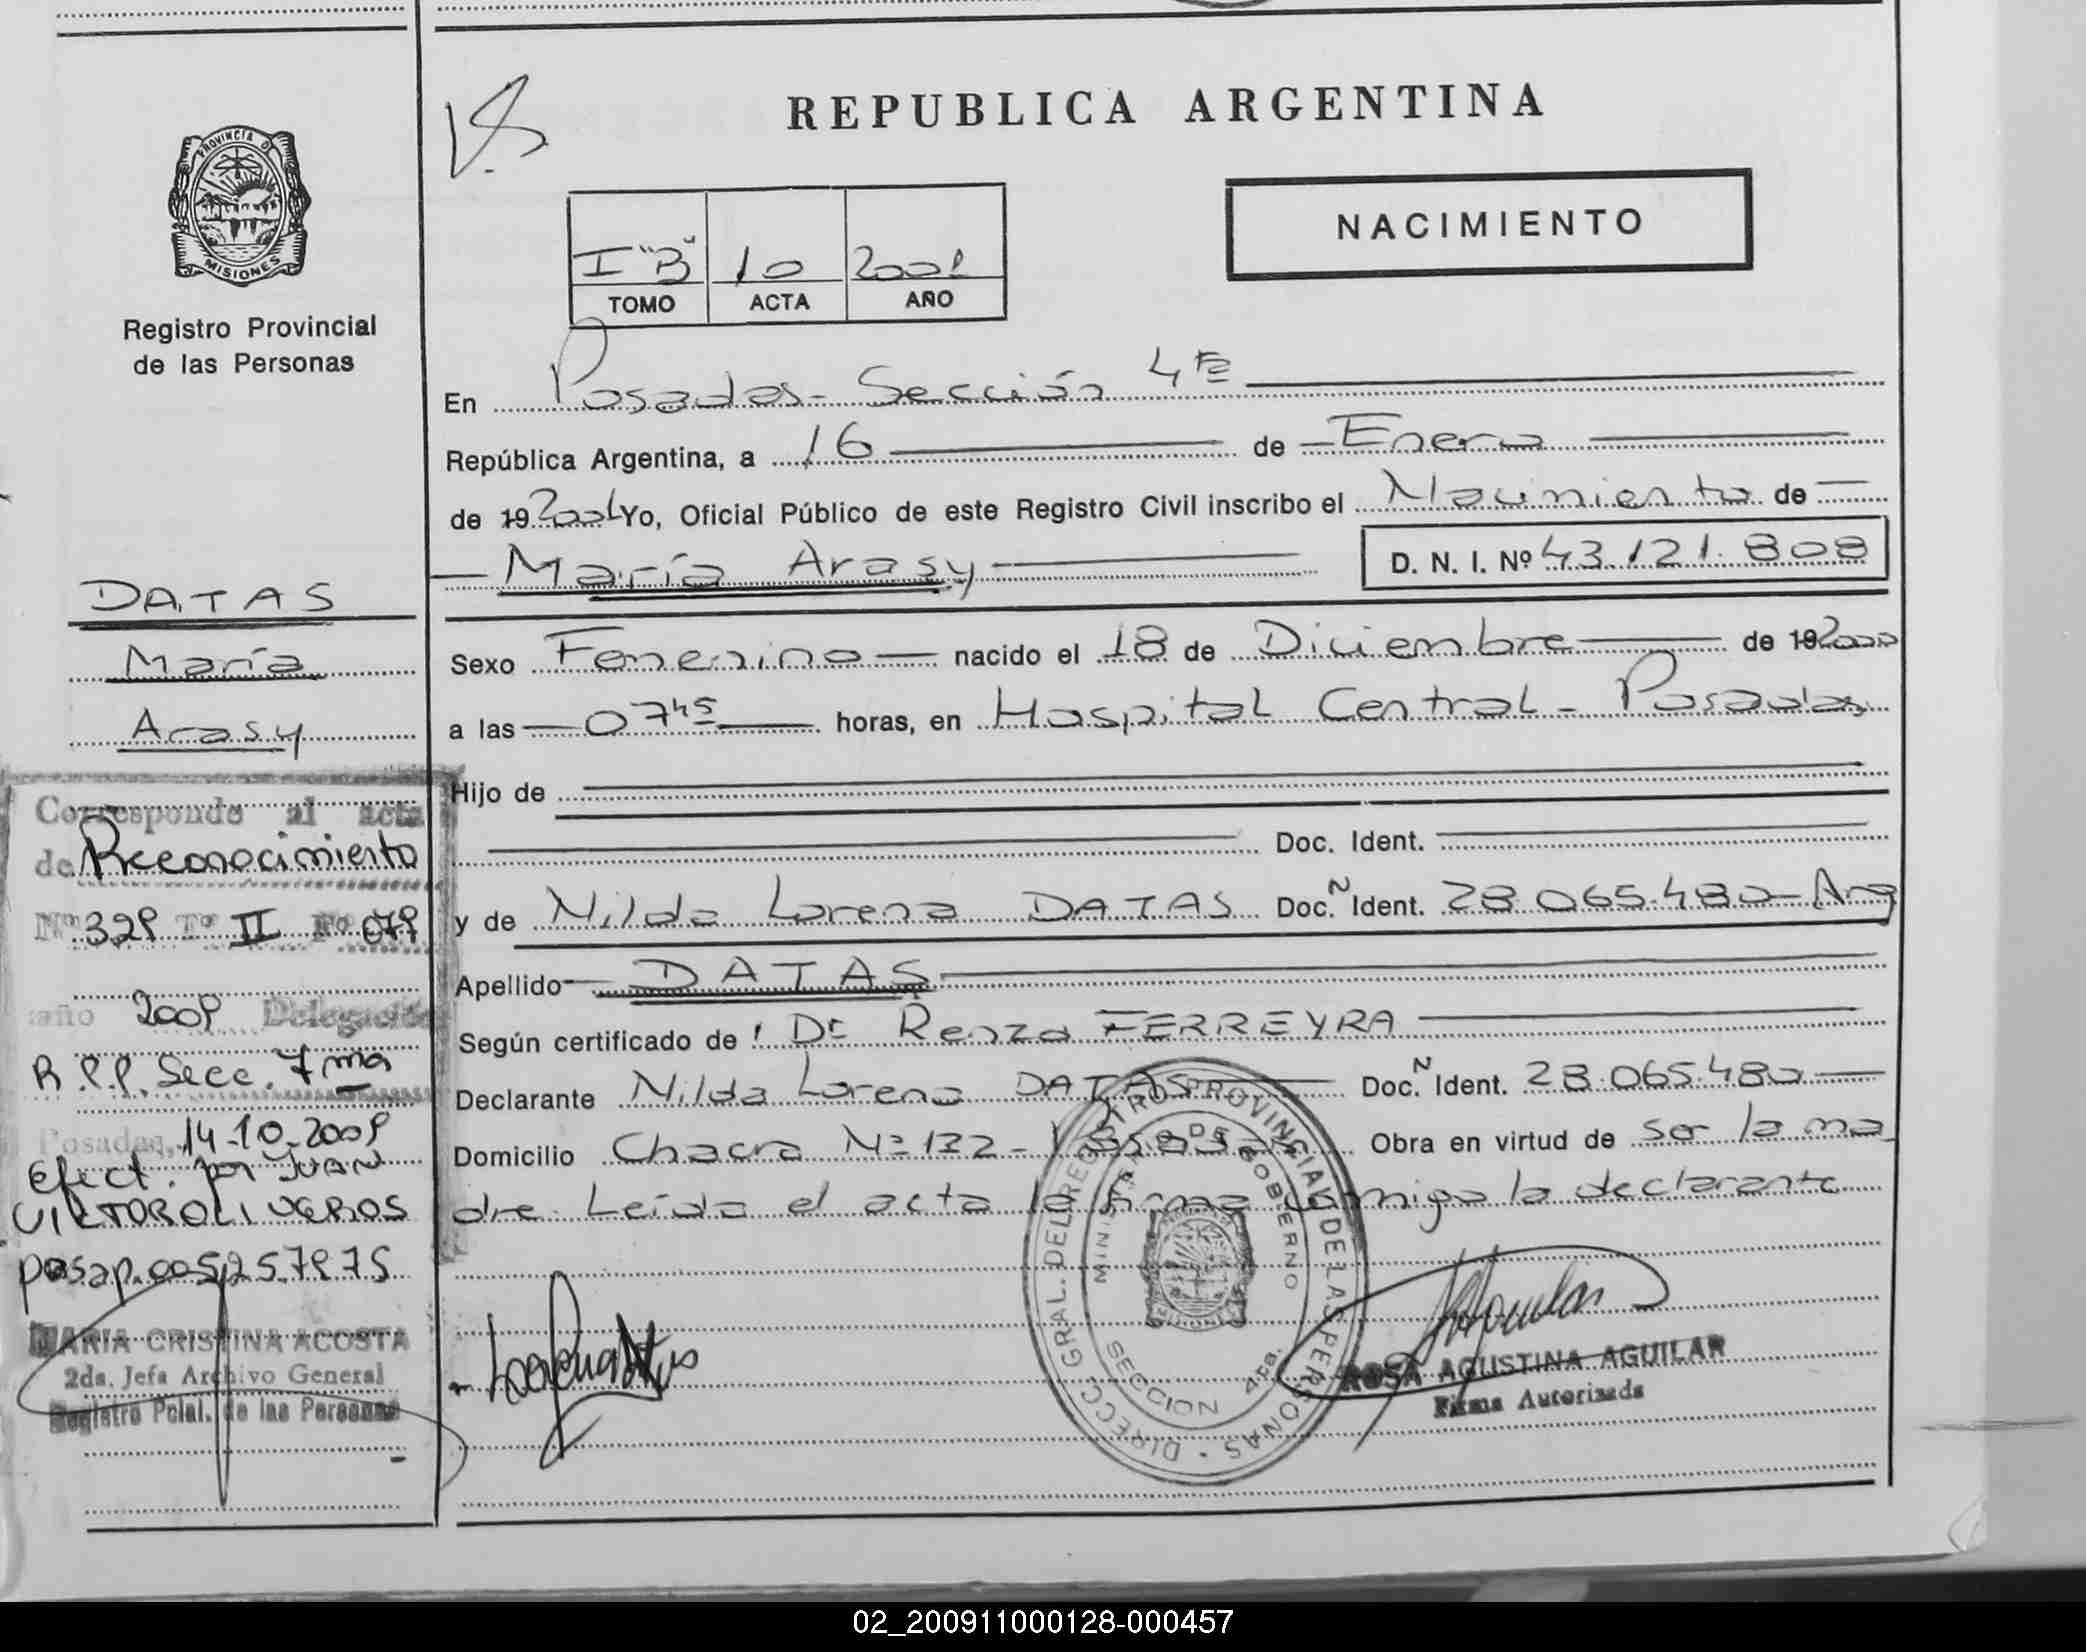 PROVINCIA D
MISIONES
Registro Provincial
de las Personas
DATAS
María
Arasy
Corresponde al acta
de Reconocimiento
Nº 329 Tº II Fº 079
año 2009 Delegación
R.P.P. Secc. 7ma
Posadas, 14-10-2009
Efect. por JUAN
VICTOR OLIVEROS
pasap. 005257975
MARIA CRISTINA ACOSTA
2da. Jefa Archivo General
Registro Pcial. de las Personas
REPUBLICA ARGENTINA
NACIMIENTO
I "B" 10 2001
TOMO ACTA AÑO
En Posadas - Sección 4ta
República Argentina, a 16 de Enero
de 19 2001 Yo, Oficial Público de este Registro Civil inscribo el Nacimiento de
María Arasy D. N. I. Nº 43.121.808
Sexo Femenino nacido el 18 de Diciembre de 19 2000
a las 0745 horas, en Hospital Central - Posadas
Hijo de
Doc. Ident.
y de Nilda Lorena DATAS Doc. N Ident. 28.065.480 - Arg
Apellido DATAS
Según certificado de Renzo FERREYRA
Declarante Nilda Lorena DATAS Doc. N Ident. 28.065.480
Domicilio Chacra Nº 132 - Posadas Obra en virtud de ser la ma
dre. Leída el acta la firma conmigo la declarante
DIRECC. GRAL. DEL REGISTRO PROVINCIAL DE LAS PERSONAS
MINISTERIO DE GOBIERNO
SECCION 4ta.
ROSA AGUSTINA AGUILAR
Firma Autorizada
02_200911000128-000457